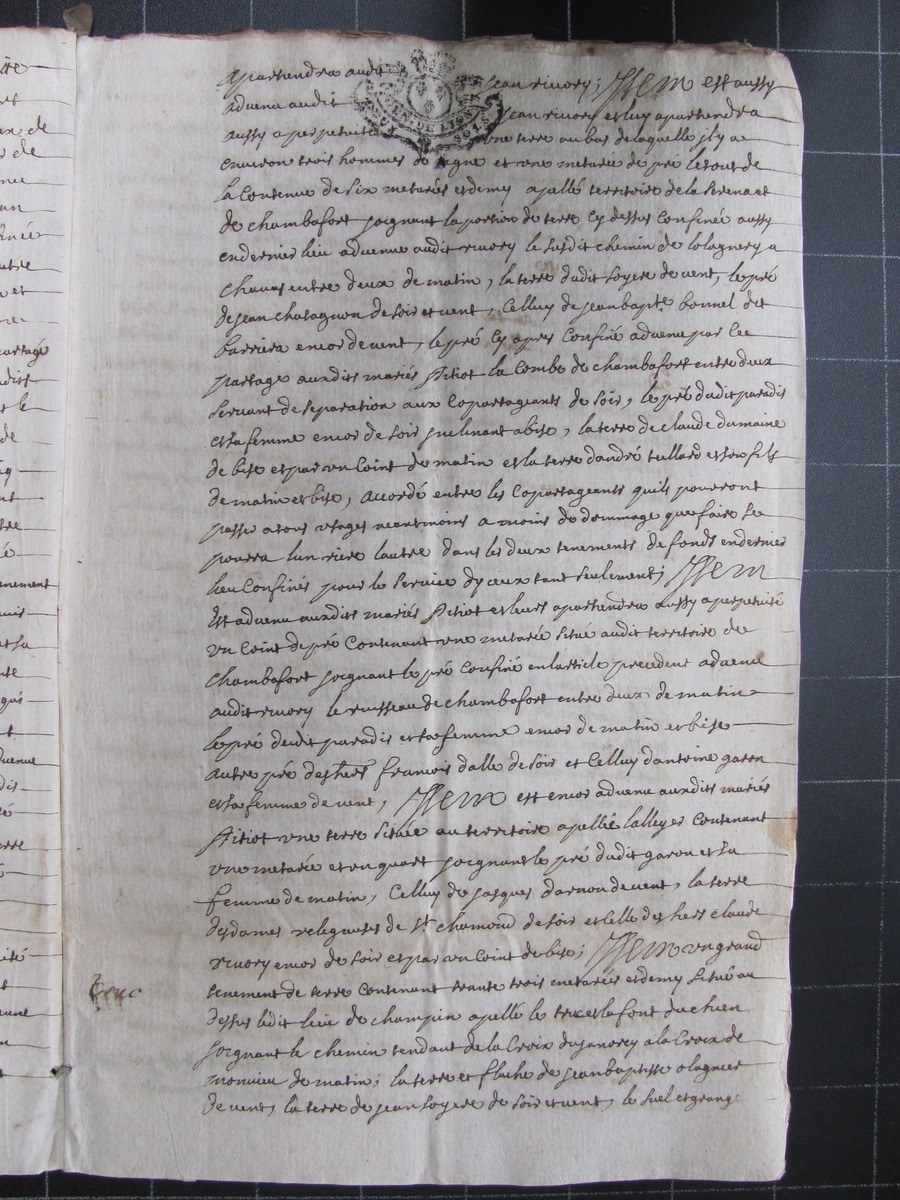 apartiendra audit jean rivory; Item est aussy
advenu audit jean rivory et luy apartiendra
aussy a perpetuité une terre au bas de laquelle jl y a
environ trois hommes de vigne et une metarée de pré le tout de
la Contenue de six metarées et demy apellé territoire de la
de chambafort joignant la portion de terre Cy dessus Confinée aussy
en dernier lieu advenue audit rivory le susdit chemin de lolagnery a
Chavas entre deux de matin, la terre dudit soyere de vent, le pré
de jean chatagnon de soir et vent, Celluy de jean bapte. bonnel dit
barriera encor de vent, le pré Cy apres Confiné advenu par Ce
partage auxdits mariés Pitiot la Combe de chambafort entre deux
servant de separation aux Copartageants de soir, le pré dudit paradis
et sa femme encor de soir jnclinant a bise, la terre de claude dumaine
de bise et par un Coint de matin et la terre d'andré teillard et son fils
de matin et bise, accordé entre les Copartageants quils pourront
passer a tous usages neantmoins a moins de dommage que faire se
pourra lun riere lautre dans les deux tenements de fonds en dernier
lieu Confinés pour le service dyceux tant seulement; Item
Est advenu auxdits mariés Pitiot et leurs apartiendra aussy a perpetuité
un Coint de pré Contenant une metarée situé audit territoire de
Chambafort joignant le pré Confiné en larticle precedent advenu
audit rivory le ruisseau de chambafort entre deux de matin
le pré dudit paradis et sa femme encor de matin et bise
autre pré des hers françois dalle de soir et Celluy dantoine garon
et sa femme de vent, Item est encor advenu auxdits mariés
Pitiot une terre située au territoire apellée lalleyer Contenant
une metarée et un quart joignant le pré dudit garon et sa
femme de matin, Celluy de jacques darnon de vent, la terre
des dames religeuses de st. chamond de soir et Celle des hers claude
rivory encor de soir et par un Coint de bise; Item un grand
truc
tenement de terre Contenant trante trois metarées et demy situé au
dessus ledit lieu de champin apellé le truc et la font du chien
joignant le chemin tendant de la Croix du janorey a la Croix de
monvieu de matin; la terre et flache de jean baptiste olagnier
de vent, la terre de jean soyere de soir et vent, le suel et grange